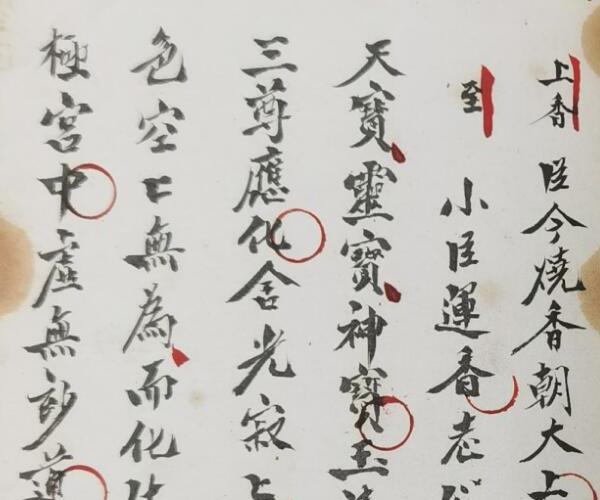 上香 臣今燒香朝大上
至 小臣運香老
天寶靈寶神寶玉
三尊應化含光寂上
色空亡無為而化
極宮中虛無妙道